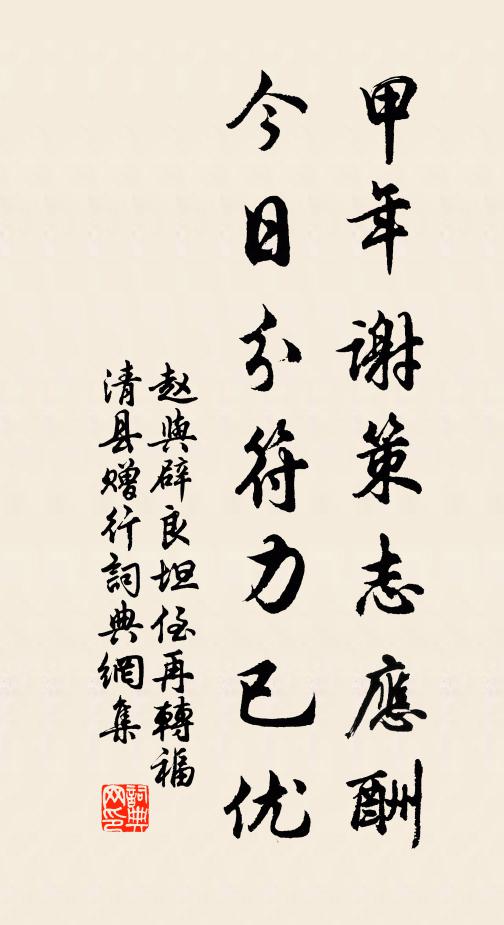 甲年谢策志應酬
今日分符力已优
赵與辟良坦侄再轉福
清县赠行詞典網集
詞典网印